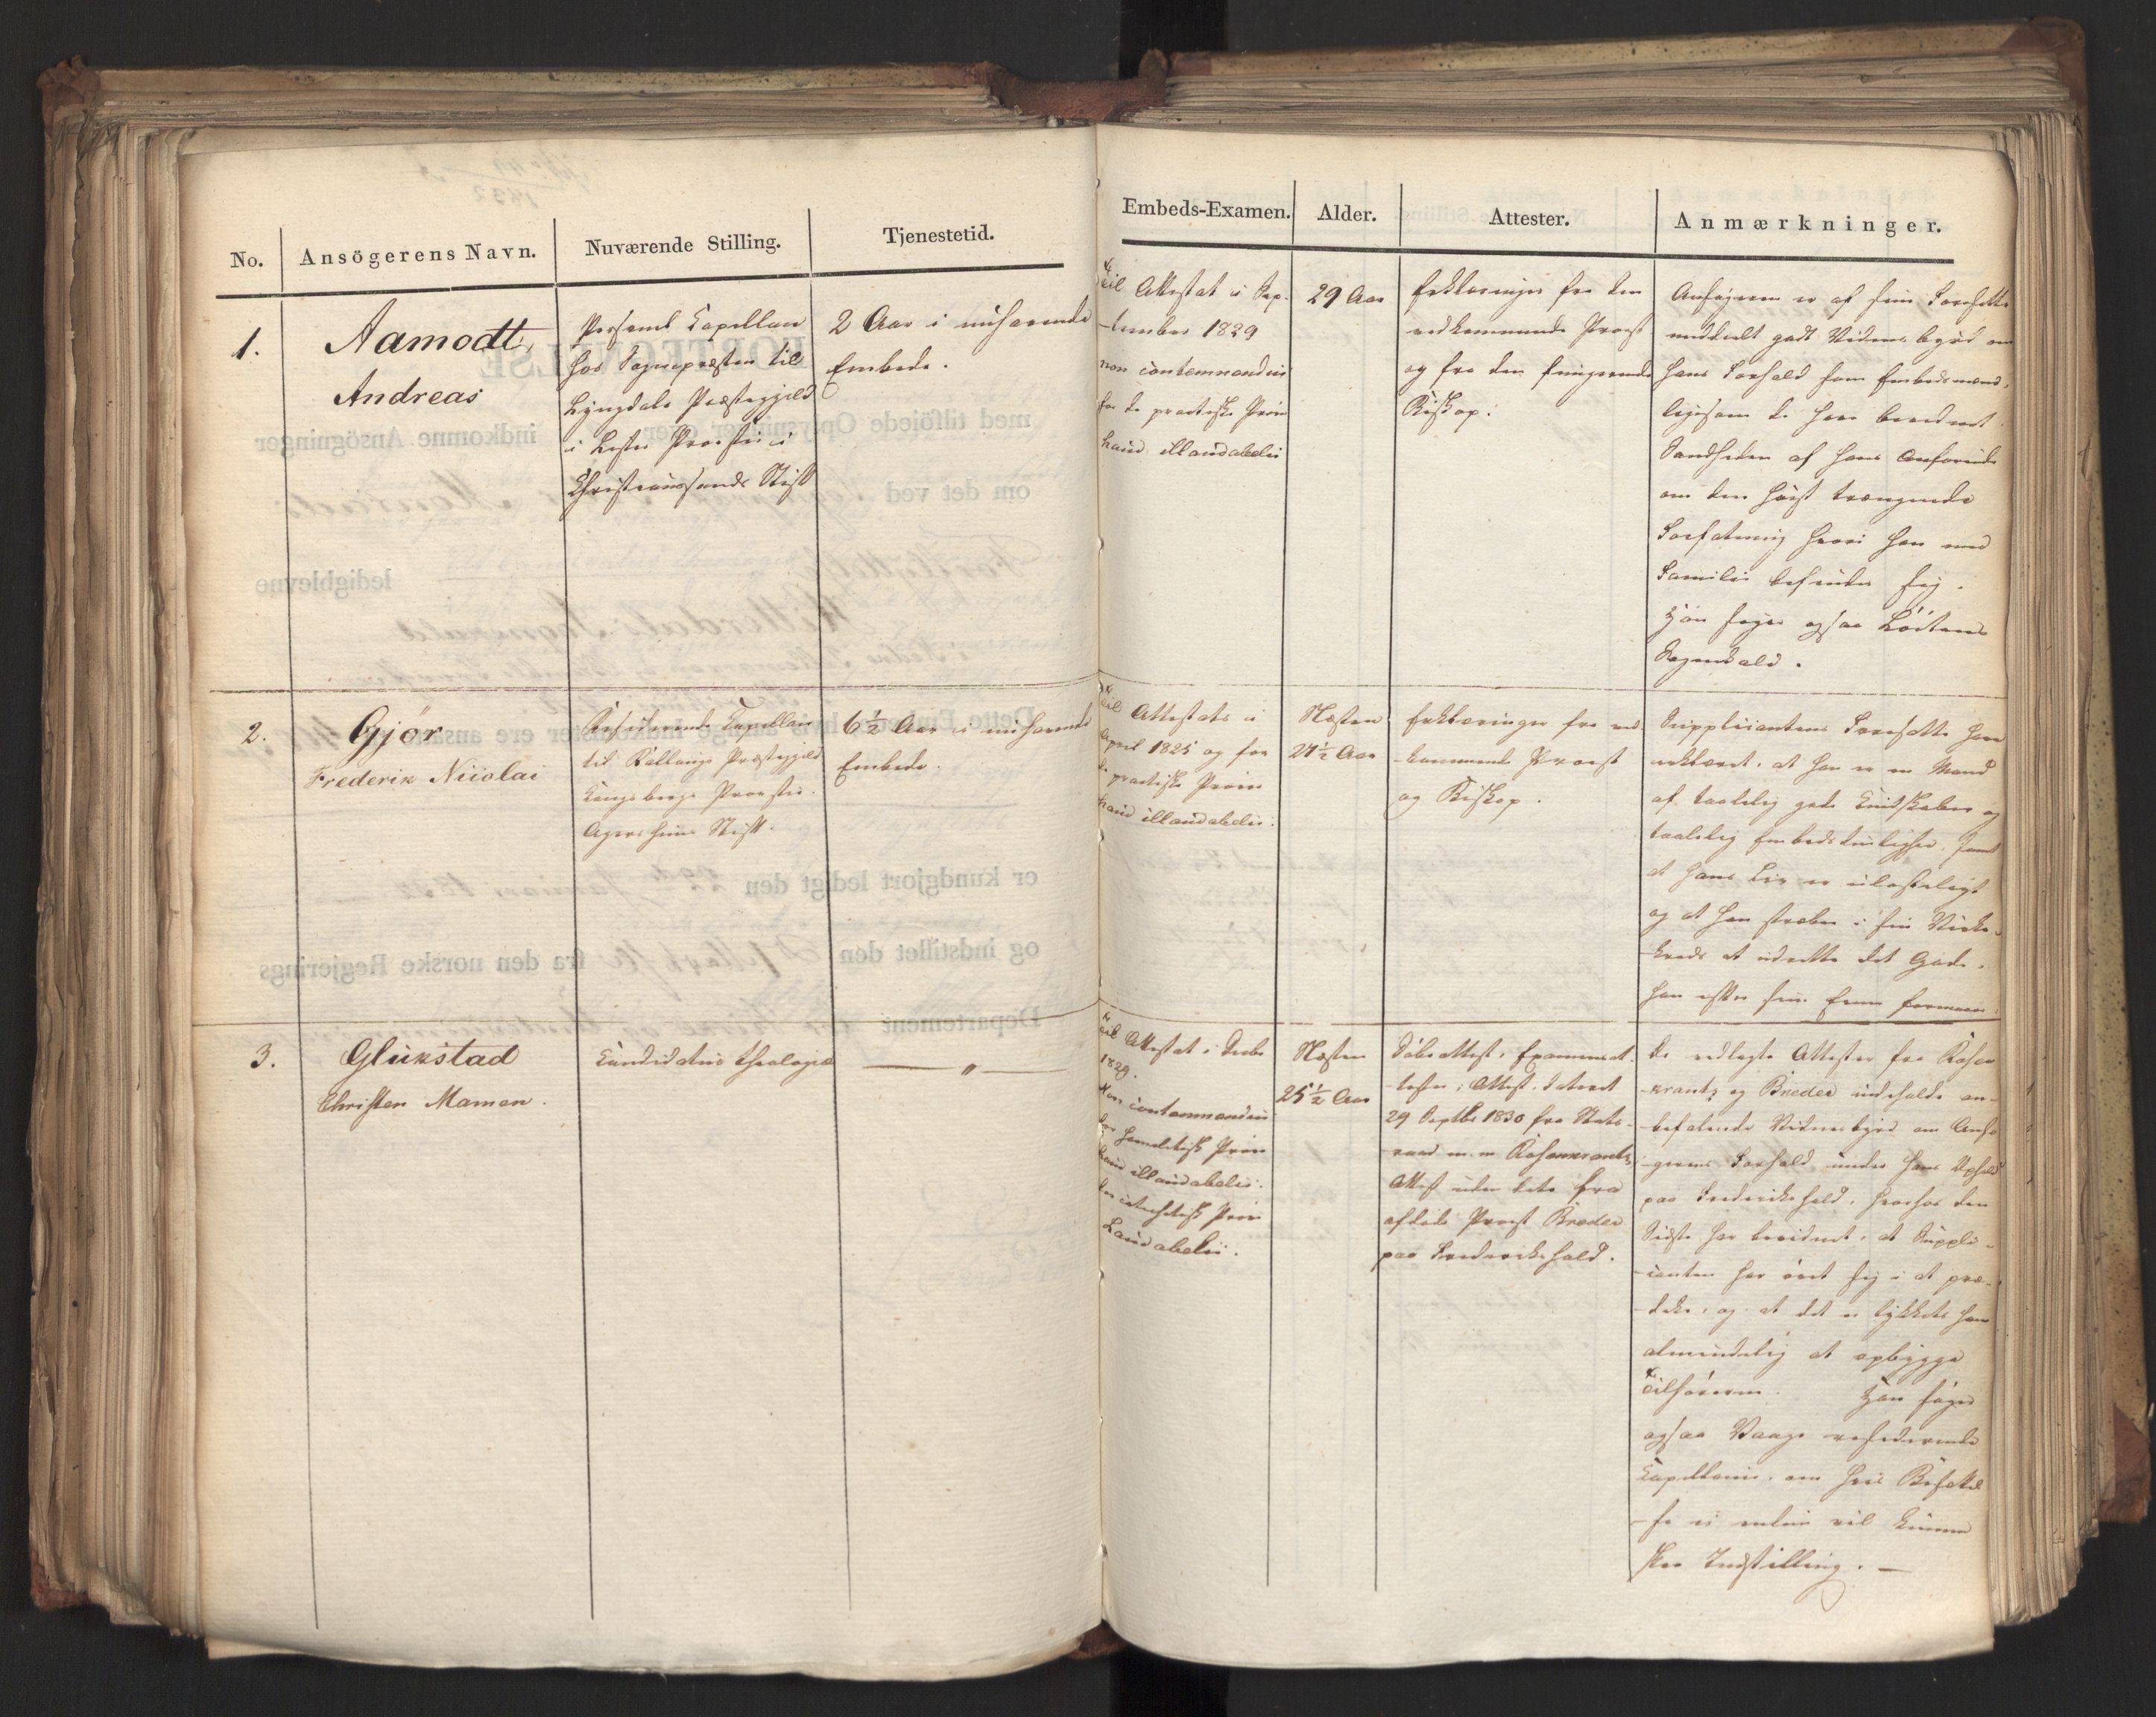 No.
Ansögerens Navn.
Nuværende Stilling.
Tjenestetid.
Embeds-Examen.
Alder.
Attester.
Anmærkninger.
1.
Aamodt,
Andreas
Personel Capellan
hos Sognepræsten til
Lyngdals Præstegjeld
i Lister Provstie i
Christianssands Stift
2 Aar i nuhavende
Embede.
Attestat i Sep-
-tember 1829
non contemnendus
for de practiske Prøver
haud illaudabilis
29 Aar
Erklæringer fra den
vedkommende Provst
og fra den fungerende
Biskop.
Ansøgeren er af sine Foresatte
meddeelt godt Vidnesbyrd om
hans Forhold som Embedsmand,
ligesom de have bevidnet
Sandheden af hans Anførende
om den høist trængende
Forfatning hvori han med
Familie befinder sig.
Han søger ogsaa Løitens
Sognekald.
2.
Gjör
Frederik Nicolai
Residerende Capellan
til Rollaugs Præstegjeld
Kongsbergs Provstie
Agershuus Stift.
6½ Aar i nuhavende
Embede.
Attestats i
April 1825 og for
de practiske Prøver
haud illaudabilis.
Næsten
Aar
Erklæringer fra ved-
-kommende Provst
og Biskop.
Supplicantens Foresatte have
erklæret, at han er en Mand
af taalelig gode Kundskaber og
taalelig Embedsduelighed, samt
at hans Liv er ulasteligt
og at han stræber i sin Virke-
-kreds at udrette det Gode,
han efter sin Evne formaaer.
3.
Glükstad
Christen Mamen.
Candidatus theologiæ
— " —
Attestat i Decbr
1829.
Non contemnendus
for homiletisk Prøve
haud illaudabilis.
for catechetisk Prøve
Laudabilis.
Næsten
25½ Aar
Döbeattest, Examensat-
-tester, Attest dateret
29 Septbr 1830 fra Stats-
-raad m. m. Rosenkrantz,
Attest uden dato fra
afdøde Provst Breder
paa Frederikshald.
De vedlagte Attester fra Rosen-
-krantz og Breder indeholde an-
-befalende Vidnesbyrd om Ansø-
-gerens Forhold under hans Ophold
paa Frederikshald, hvorhos den
Sidste har bevidnet, at Suppli-
-canten har övet sig i at præ-
-dike, og at det er lykkets ham
almindelig at opbygge
Tilhörerne. Han søger
ogsaa Vaage residerende
Capellanie, om hvis Besættel-
-se ei endnu vil kunne
skee Indstilling. —